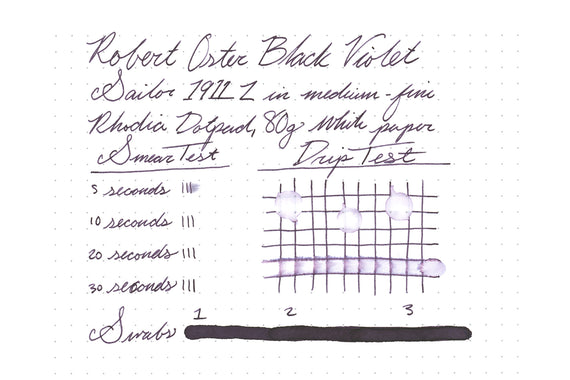 Robert Oster Black Violet
Sailor 1911 L in medium-fine
Rhodia Dotpad, 80g white paper
Smear Test
Drip Test
5 seconds
10 seconds
20 seconds
30 seconds
1 2 3
Swabs